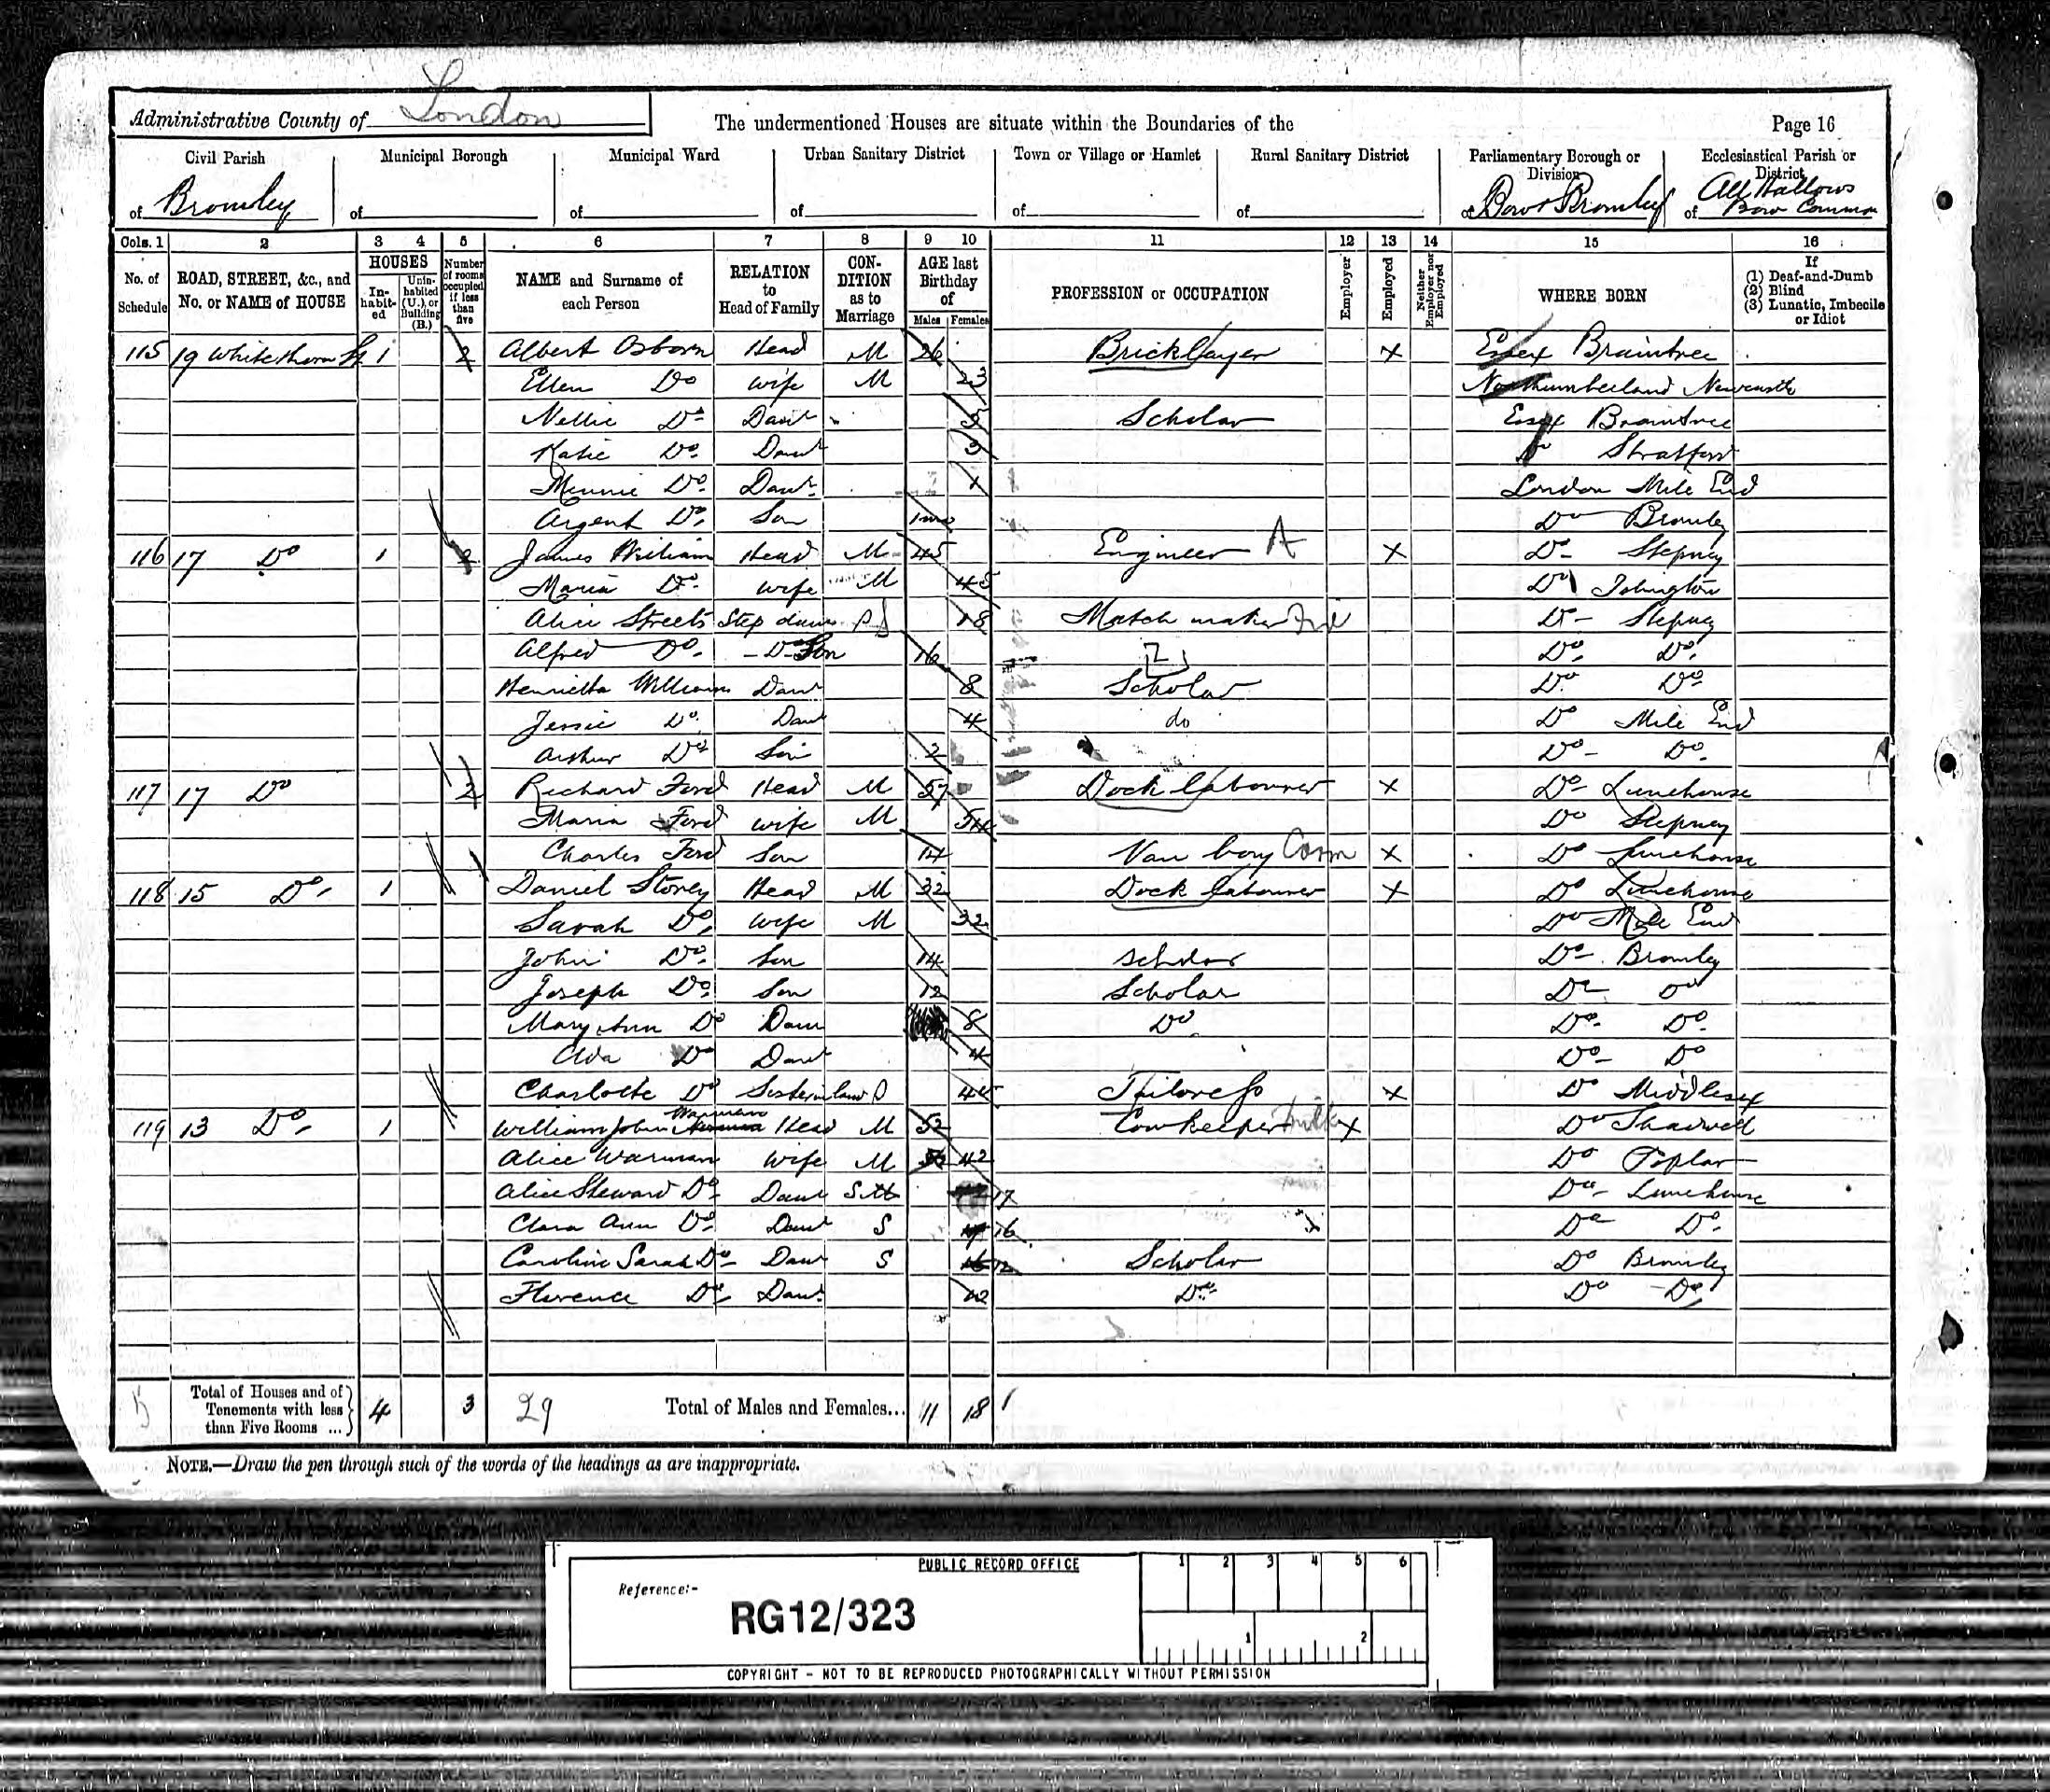 Administrative County of London
The undermentioned Houses are situate within the Boundaries of the
Page 16
Civil Parish Municipal Borough Municipal Ward Urban Sanitary District Town or Village or Hamlet Rural Sanitary District Parliamentary Borough or Division Ecclesiastical Parish or District
of Bromley of of of of of of Bow & Bromley of All Hallows Bow Common
Cols. 1 2 3 4 5 6 7 8 9 10 11 12 13 14 15 16
No. of Schedule ROAD, STREET, &c., and No. or NAME of HOUSE HOUSES In-habit-ed Unin-habited (U.), or Building (B.) Number of rooms occupied if less than five NAME and Surname of each Person RELATION to Head of Family CON-DITION as to Marriage AGE last Birthday of Males Females PROFESSION or OCCUPATION Employer Employed Neither Employer nor Employed WHERE BORN If (1) Deaf-and-Dumb (2) Blind (3) Lunatic, Imbecile or Idiot
115 19 Whitethorn St 1 2 Albert Osborn Head M 26 Bricklayer X Essex Braintree
Ellen Do wife M 23 Northumberland Newcastle
Nellie Do Daur Scholar Essex Braintree
Katie Do Daur 3 Do Stratford
Minnie Do Daur 1 London Mile End
Argent Do Son 1mo Do Bromley
116 17 Do 1 James William Head M 45 Engineer A X Do Stepney
Maria Do wife M 45 Do Islington
Alice Streets Step daur S 18 Match maker Do Stepney
Alfred Do Do Son 16 Do Do
Henrietta Williams Daur 8 Scholar Do Do
Jessie Do Daur 4 do Do Mile End
Arthur Do Son 2 Do Do
117 17 Do 2 Richard Ford Head M 57 Dock labourer X Do Limehouse
Maria Ford wife M 54 Do Stepney
Charles Ford Son 14 Van boy Carm X Do Limehouse
118 15 Do 1 Daniel Storey Head M 32 Dock labourer X Do Limehouse
Sarah Do wife M 32 Do Mile End
John Do Son 14 scholar Do Bromley
Joseph Do Son 12 Scholar Do Do
Mary Ann Do Daur 8 Do Do Do
Ada Do Daur 4 Do Do
Charlotte Do Sister in law S 44 Tailoress X Do Middlesex
119 13 Do 1 William John Warman Head M 52 Cowkeeper milk X Do Shadwell
Alice Warman wife M 42 Do Poplar
Alice Steward Do Daur S 17 Do Limehouse
Clara Ann Do Daur S 16 Do Do
Caroline Sarah Do Daur S 12 Scholar Do Bromley
Florence Do Daur Do Do Do
Total of Houses and of Tenements with less than Five Rooms ... 4 3 29 Total of Males and Females... 11 18
NOTE.—Draw the pen through such of the words of the headings as are inappropriate.
PUBLIC RECORD OFFICE
1 2 3 4 5 6
Reference:-
RG12/323
1 2
COPYRIGHT - NOT TO BE REPRODUCED PHOTOGRAPHICALLY WITHOUT PERMISSION